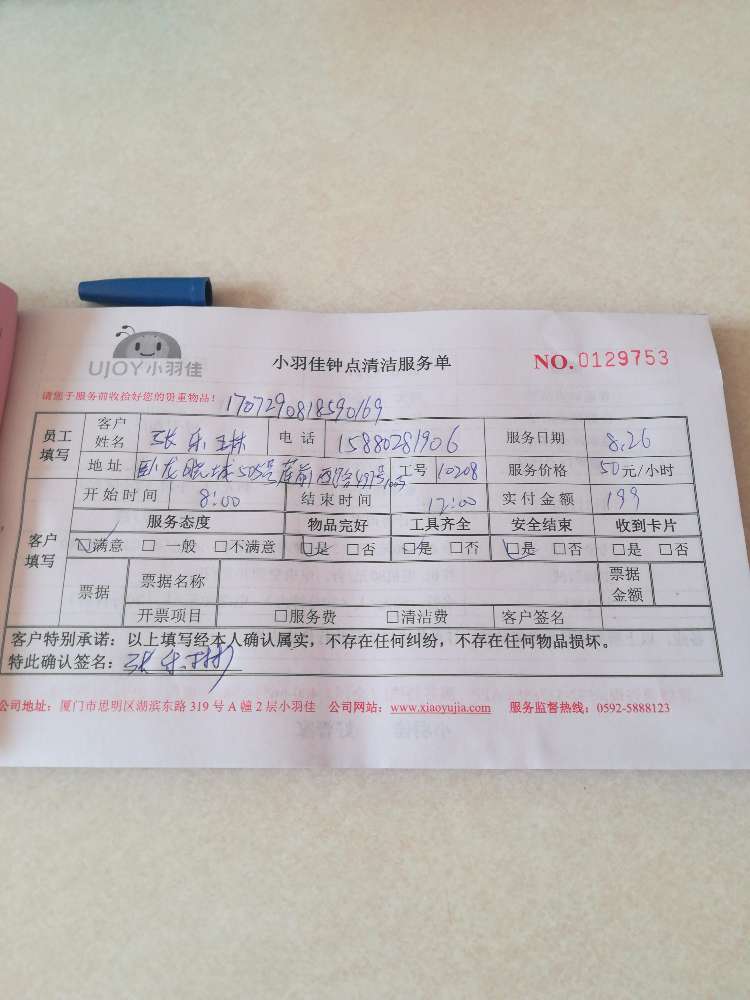 UJOY小羽佳
小羽佳钟点清洁服务单
NO.0129753
请您于服务前收拾好您的贵重物品！
1707290818590169
员工填写 客户姓名 张乐琳 电话 15880281906 服务日期 8.26
地址 卧龙晓城505号 工号 10208 服务价格 50元/小时
客户填写 开始时间 8:00 结束时间 12:00 实付金额 199
服务态度 物品完好 工具齐全 安全结束 收到卡片
☑满意 □一般 □不满意 ☑是 □否 ☑是 □否 ☑是 □否 □是 □否
票据 票据名称 票据金额
开票项目 □服务费 □清洁费 客户签名
客户特别承诺：以上填写经本人确认属实，不存在任何纠纷，不存在任何物品损坏。
特此确认签名：张乐琳
公司地址：厦门市思明区湖滨东路 319 号 A 幢 2 层小羽佳 公司网站：www.xiaoyujia.com 服务监督热线：0592-5888123